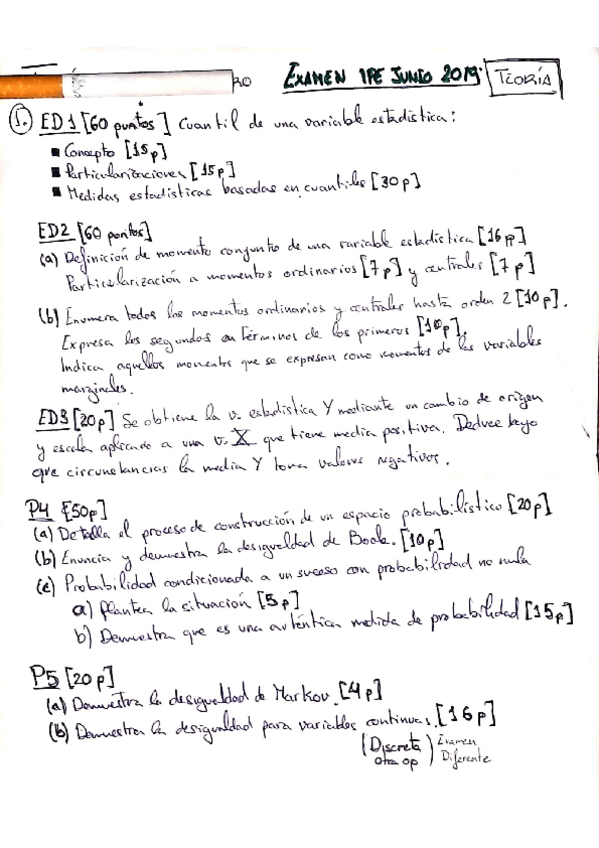 RO EXAMEN IPE JUNIO 2019: TEORÍA
1. ED1 [60 puntos] Cuantil de una variable estadística:
■ Concepto [15p]
■ Particularizaciones [15p]
■ Medidas estadísticas basadas en cuantiles [30p]
ED2 [60 puntos]
(a) Definición de momento conjunto de una variable estadística [16p]
Particularización a momentos ordinarios [7p] y centrales [7p]
(b) Enumera todos los momentos ordinarios y centrales hasta orden 2 [10p].
Expresa los segundos en términos de los primeros [10p].
Indica aquellos momentos que se expresan como momentos de las variables
marginales.
ED3 [20p] Se obtiene la v. estadística Y mediante un cambio de origen
y escala aplicado a una v. X que tiene media positiva. Deduce bajo
qué circunstancias la media Y toma valores negativos.
P4 [50p]
(a) Detalla el proceso de construcción de un espacio probabilístico [20p]
(b) Enuncia y demuestra la desigualdad de Boole. [10p]
(c) Probabilidad condicionada a un suceso con probabilidad no nula
a) Plantea la situación [5p]
b) Demuestra que es una auténtica medida de probabilidad [15p]
P5 [20p]
(a) Demuestra la desigualdad de Markov. [4p]
(b) Demuestra la desigualdad para variables continuas. [16p]
(Discreta otra op) Examen Diferente